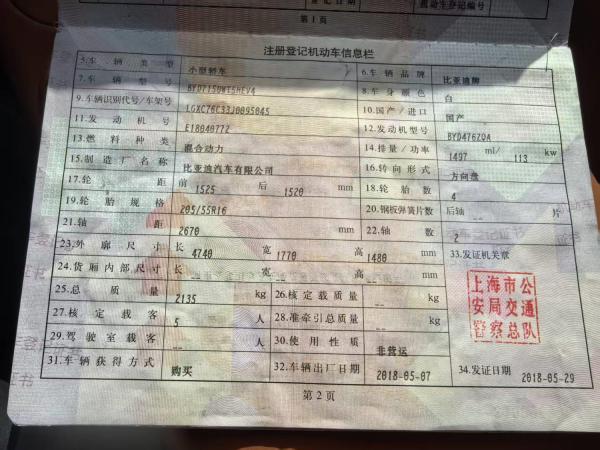 第1页
注册登记机动车信息栏
5.车辆类型 小型轿车 6.车辆品牌 比亚迪牌
7.车辆型号 BYD7150WT5HEV4 8.车身颜色 白
9.车辆识别代号/车架号 LGXC76C33J0095045 10.国产/进口 国产
11.发动机号 E18040772 12.发动机型号 BYD476ZQA
13.燃料种类 混合动力 14.排量/功率 1497 ml/ 113 kw
15.制造厂名称 比亚迪汽车有限公司 16.转向形式 方向盘
17.轮距 前 1525 后 1520 mm 18.轮胎数 4
19.轮胎规格 205/55R16 20.钢板弹簧片数 后轴 -- 片
21.轴距 2670 mm 22.轴数 2
23.外廓尺寸 长 4740 宽 1770 高 1480 mm 33.发证机关章
24.货厢内部尺寸 长 -- 宽 -- 高 -- mm
25.总质量 2135 kg 26.核定载质量 -- kg
27.核定载客 5 人 28.准牵引总质量 -- kg
29.驾驶室载客 -- 人 30.使用性质 非营运
31.车辆获得方式 购买 32.车辆出厂日期 2018-05-07 34.发证日期 2018-05-29
上海市公
安局交通
警察总队
第2页